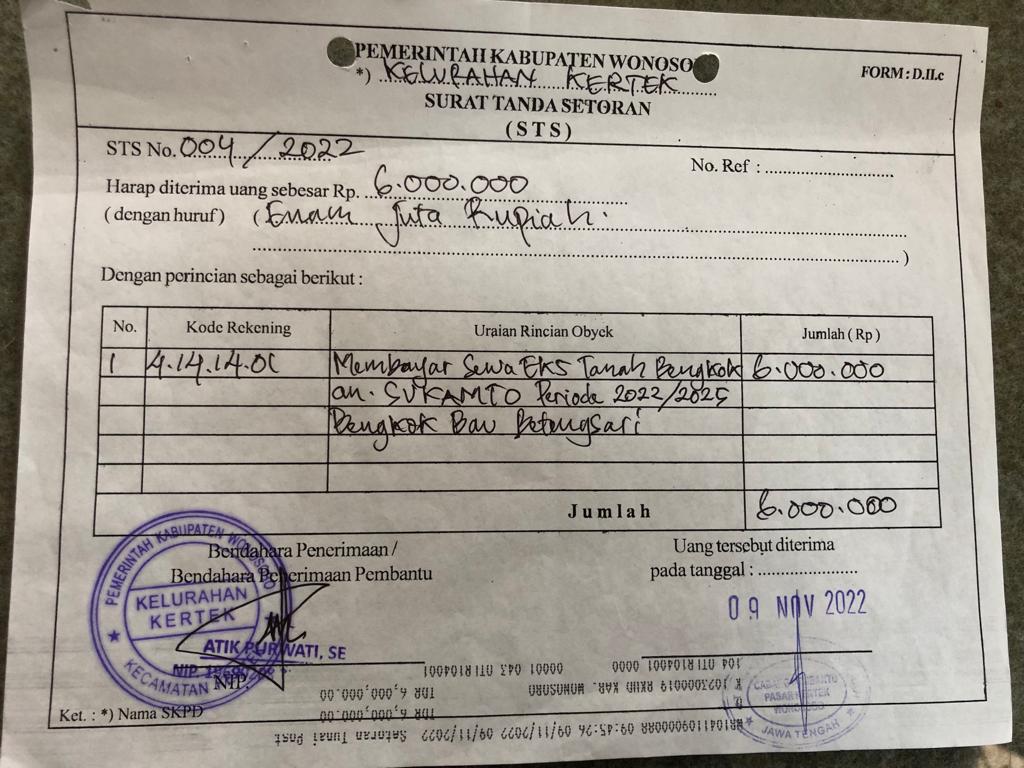 PEMERINTAH KABUPATEN WONOSO
*) KELURAHAN KERTEK
FORM : D.II.c
SURAT TANDA SETORAN
( S T S )
STS No. 004/2022
No. Ref :
Harap diterima uang sebesar Rp. 6.000.000
( dengan huruf ) ( Enam Juta Rupiah.
)
Dengan perincian sebagai berikut :
No. Kode Rekening Uraian Rincian Obyek Jumlah ( Rp )
1 4.14.14.01 Membayar Sewa EKS Tanah Bengkok 6.000.000
an. SUKAMTO Periode 2022/2025
Bengkok Bau Betengsari
Jumlah 6.000.000
Bendahara Penerimaan /
Bendahara Penerimaan Pembantu
Uang tersebut diterima
pada tanggal :
09 NOV 2022
PEMERINTAH KABUPATEN WONOSOBO
KELURAHAN
KERTEK
KECAMATAN
ATIK PURWATI, SE
NIP
NIP.
Ket. : *) Nama SKPD
104 0000 00001 043
K 1023000019 RKUD KAB. WONOSOBO
IDR 6,000,000.00
IDR 6,000,000.00
09/11/2022 09/11/2022 09:45:26 Setoran Tunai Post
PASAR KERTEK
JAWA TENGAH